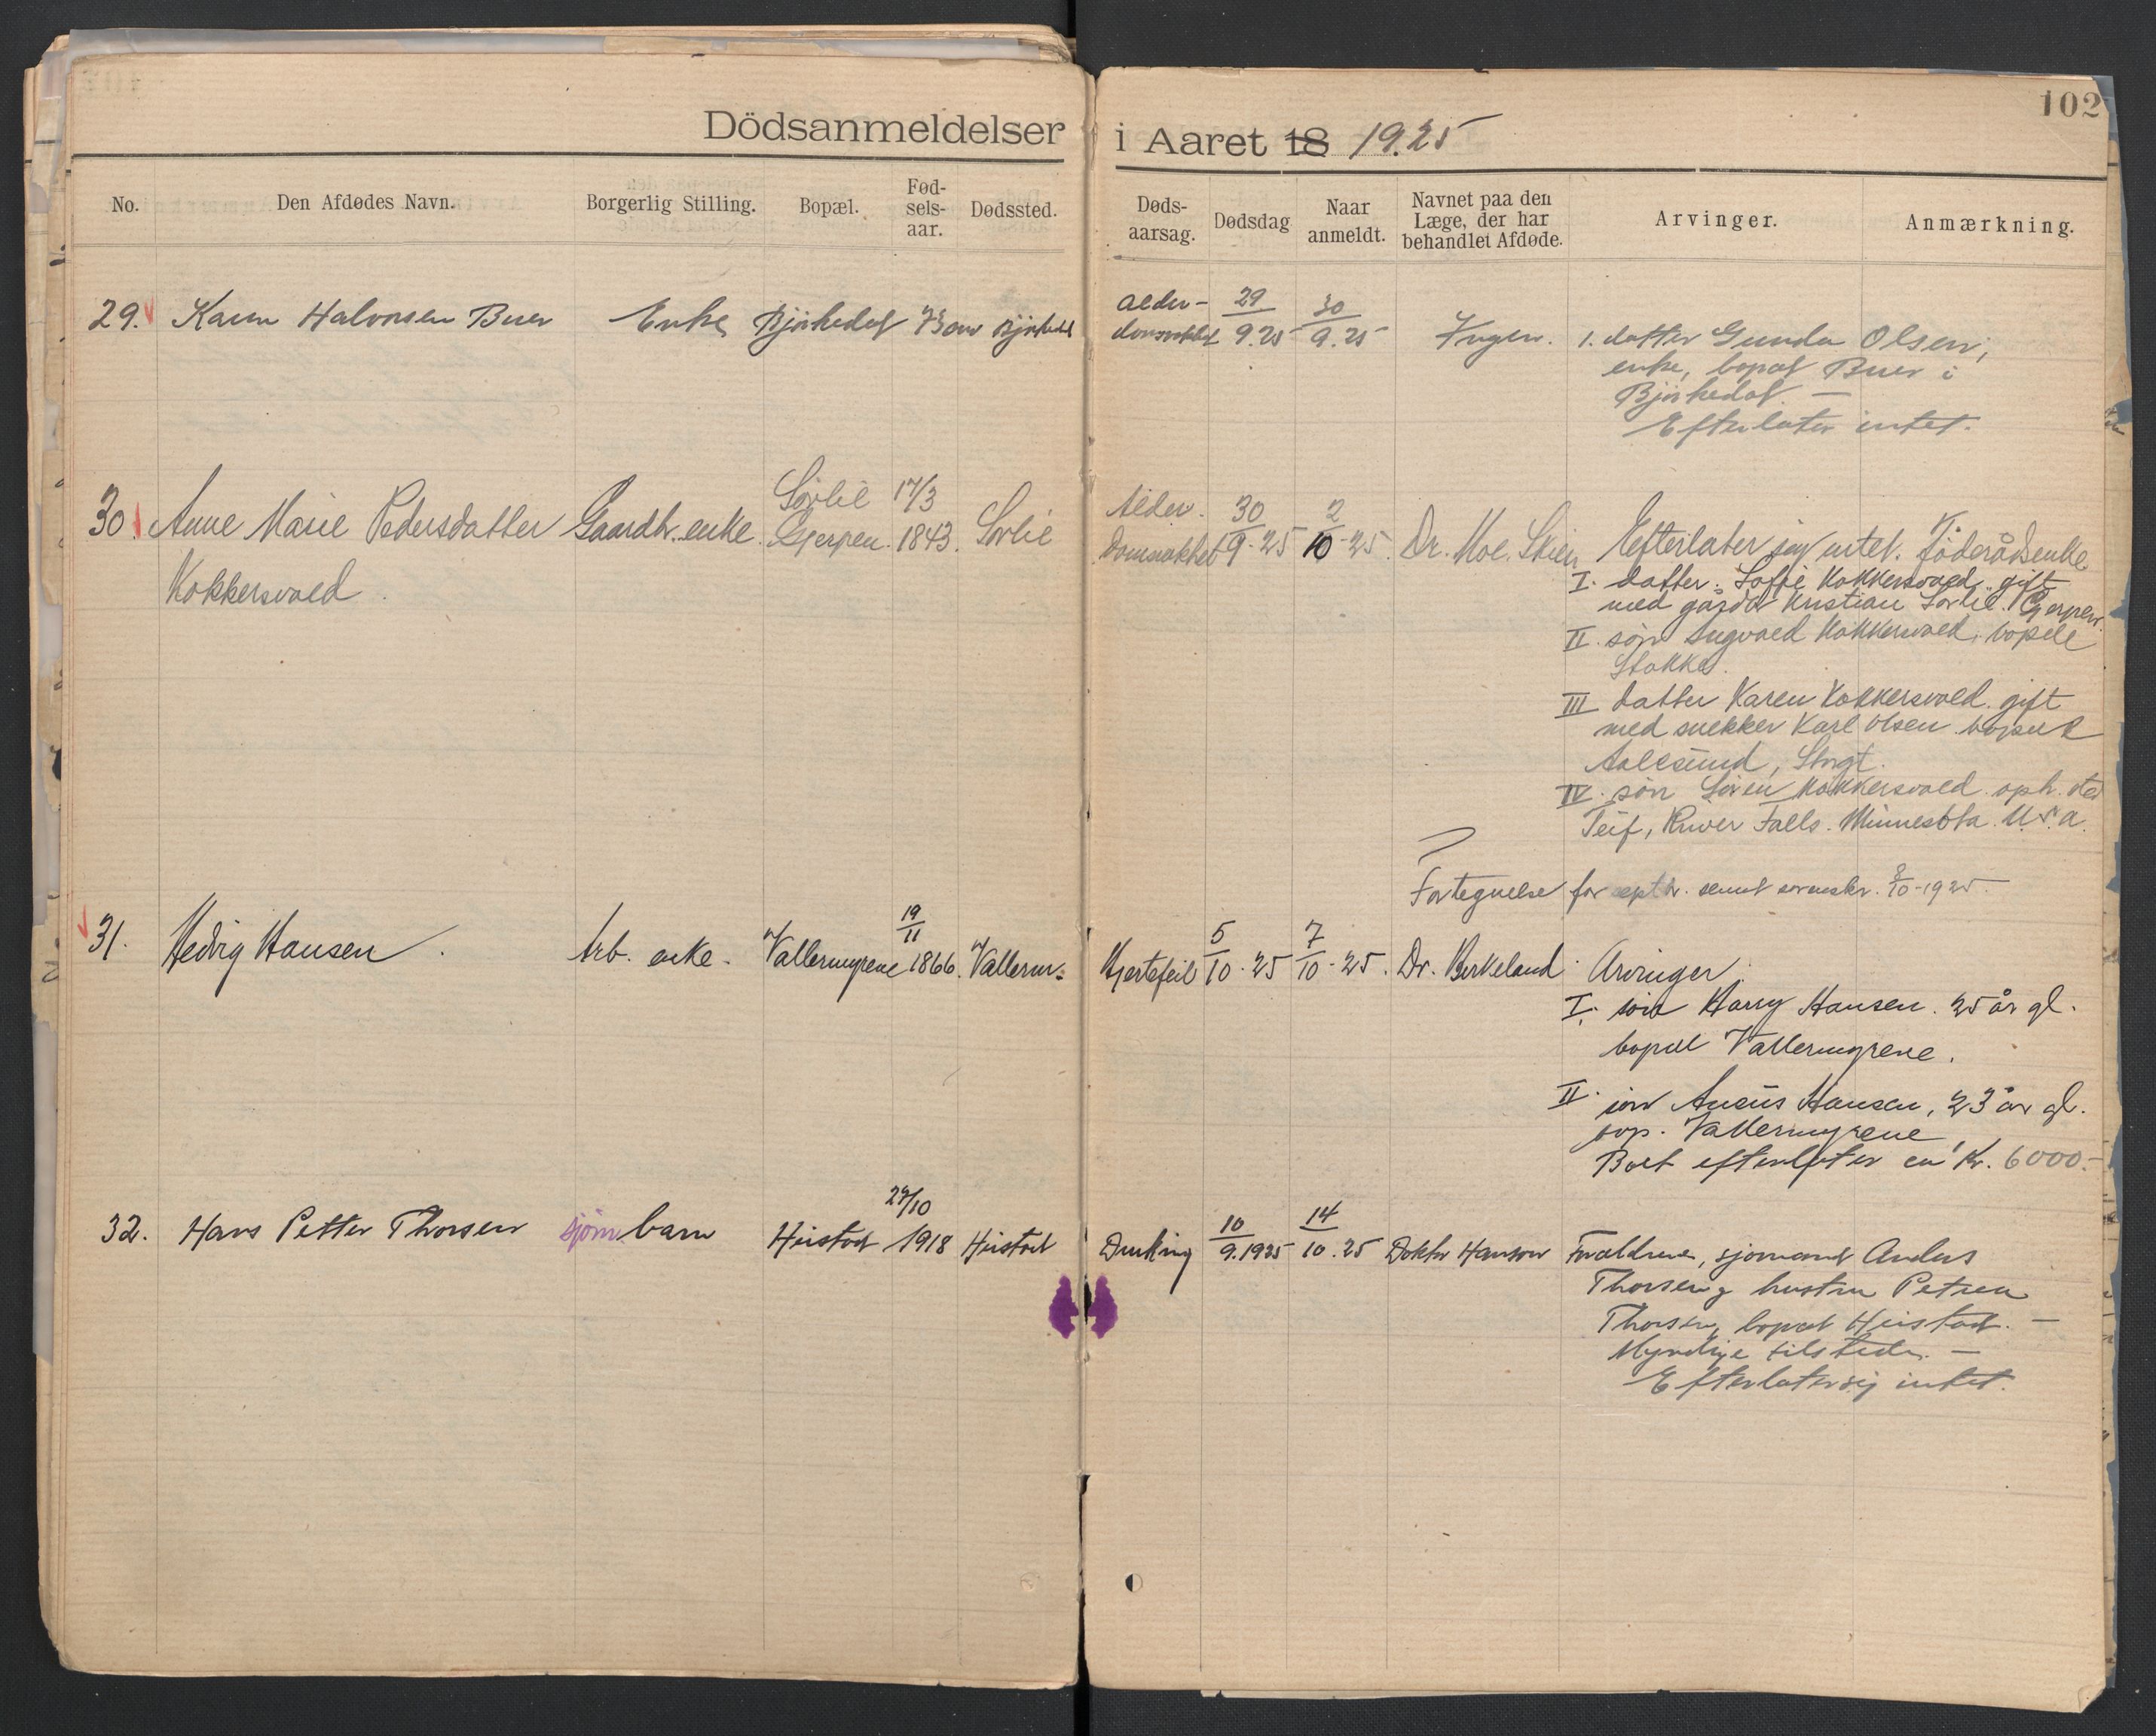 102
Dödsanmeldelser i Aaret 18 1925
No.
Den Afdødes Navn.
Borgerlig Stilling.
Bopæl.
Fød-
sels-
aar.
Dødssted.
Døds-
aarsag.
Dødsdag
Naar
anmeldt.
Navnet paa den
Læge, der har
behandlet Afdøde.
Arvinger.
Anmærkning.
29. Karen Halvorsen Buer
Enke
Björkedal
Björkedal
Alder-
domssvakhet
29/9.25
30/9.25
Ingen.
1. datter Gunda Olsen,
enke, bopæl Buer i
Björkedal. —
Efterlater intet.
30. Anne Marie Pedersdatter
Kokkersvold
Gaardbr. enke.
Sörlie
Gjerpen.
17/3
1843.
Sörlie
Alder.
domsvakhet
30/9-25
2/10-25.
Dr. Moe. Skien
Efterlater sig intet. Föderådsenke
I. datter. Sofie Kokkersvold, gift
med gårdbr Kristian Sörlie. Gjerpen.
II. sön Sigvald Kokkersvold, bopæl
Stokke.
III datter Karen Kokkersvold. gift
med snekker Karl Olsen bopæl
Aalesund, Storgt.
IV. sön Sören Kokkersvold oph. sted
Teif, River Falls. Minnesota. U.S.A.
Fortegnelse for septbr. sendt sorenskr. 8/10-1925.—
31. Hedvig Hansen.
Arb. enke.
Vallermyrene
19/11
1866.
Vallerm.
Hjertefeil
5/10-25
7/10-25.
Dr. Birkeland
Arvinger.
I. sön Harry Hansen. 25 år gl.
bopæl Vallermyrene.
II. sön Hansen, 23 år gl.
bop. Vallermyrene
Boet efterlater ca Kr. 6000.-
32. Hans Petter Thorsen
sjöm. barn
Heistad
27/10
1918
Heistad
Drukning
10/9.1925
14/10.25
Doktor Hanson
Forældrene, sjömand Anders
Thorsen og hustru Petrea
Thorsen, bopæl Heistad. —
Myndige tilstede. —
Efterlater sig intet.